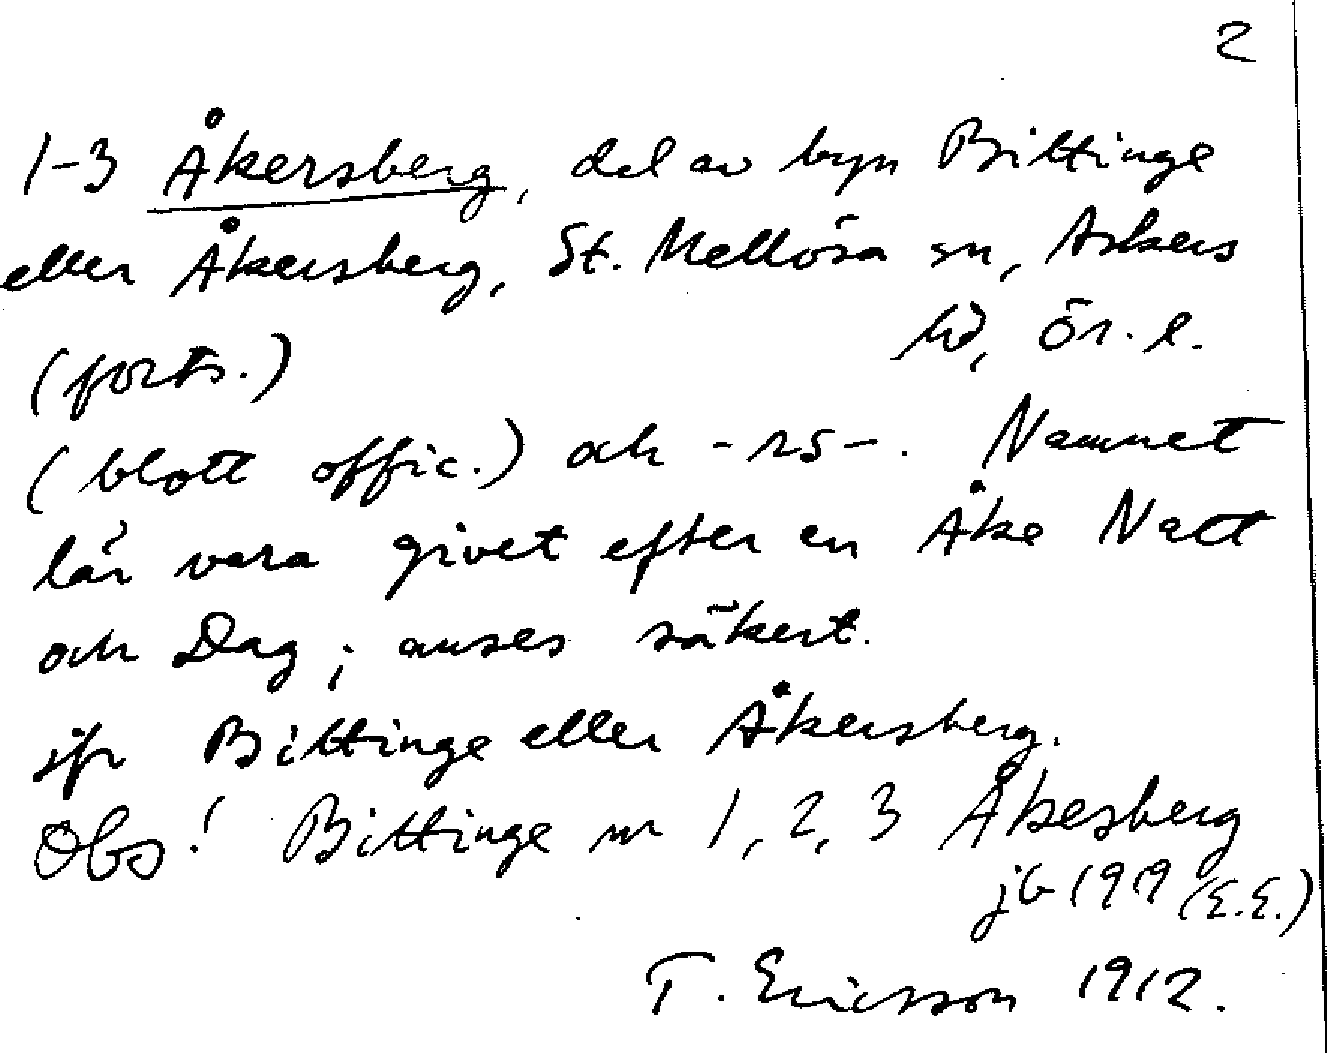 2
1-3 Åkersberg, del av byn Bittinge
eller Åkersberg, St. Mellösa sn, Askers
hd, Ör. l.
(forts.)
(blott offic.) och -rs-. Namnet
lär vara givet efter en Åke Natt
och Dag; anses säkert.
jfr Bittinge eller Åkersberg.
Obs! Bittinge nr 1, 2, 3 Åkesberg
jb 1919 (E.E.)
T. Ericsson 1912.